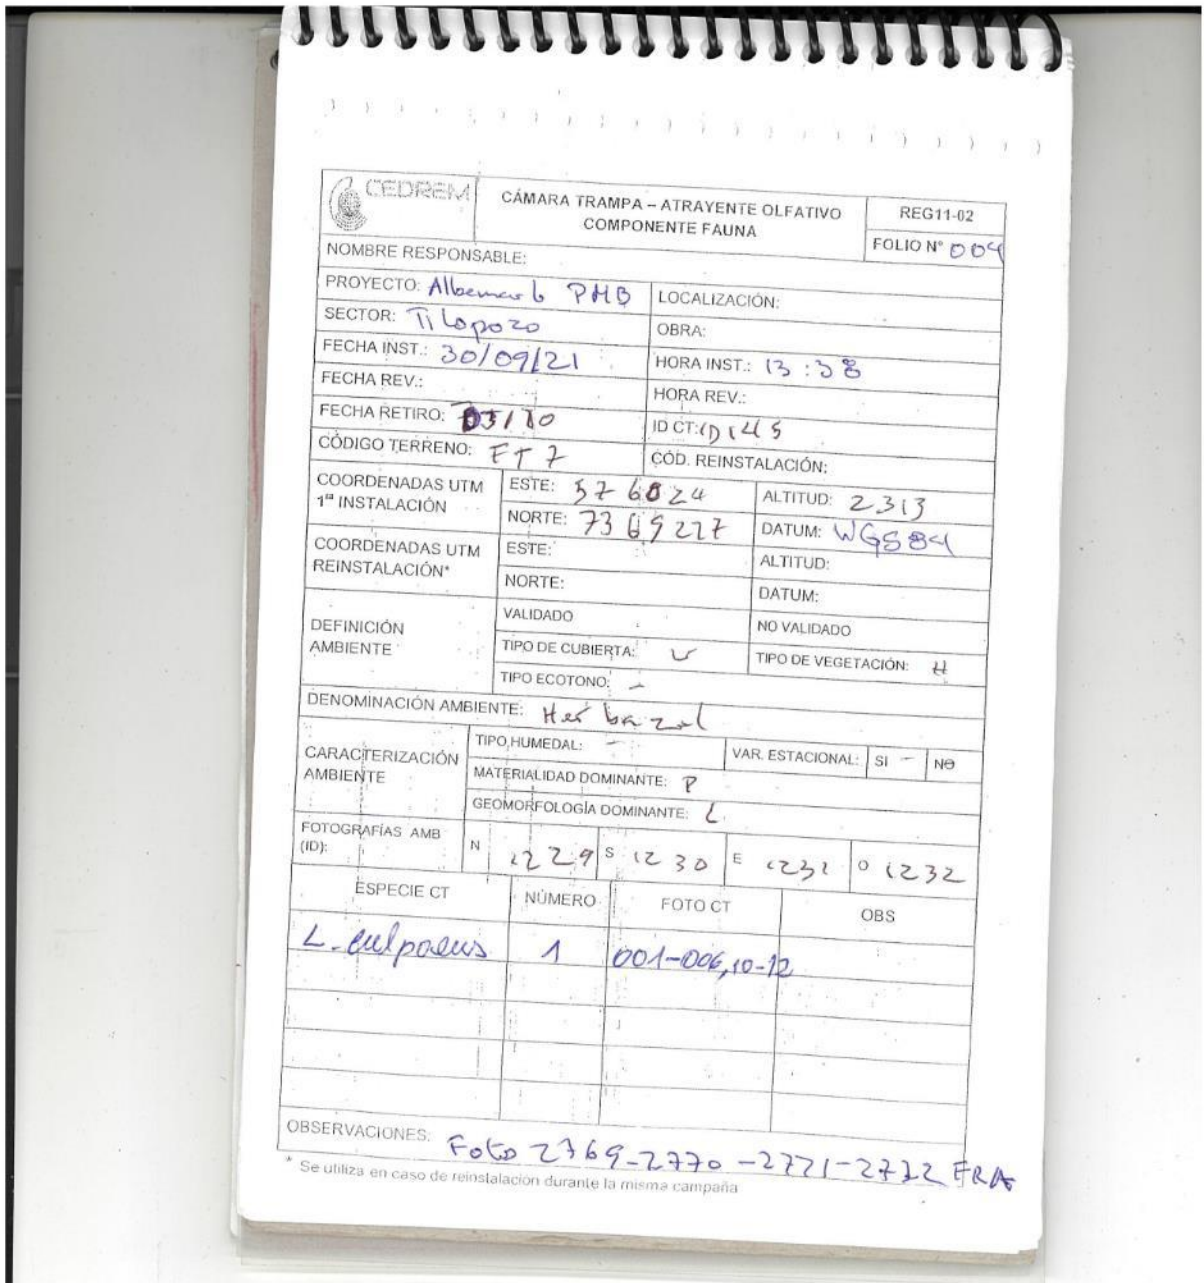 CEDREM
CÁMARA TRAMPA – ATRAYENTE OLFATIVO
COMPONENTE FAUNA
REG11-02
FOLIO N° 004
NOMBRE RESPONSABLE:
PROYECTO: Albemarle PMB
LOCALIZACIÓN:
SECTOR: Tilopozo
OBRA:
FECHA INST.: 30/09/21
HORA INST.: 13:38
FECHA REV.:
HORA REV.:
FECHA RETIRO: 03/10
ID CT: ID145
CÓDIGO TERRENO: FT7
CÓD. REINSTALACIÓN:
COORDENADAS UTM
1ª INSTALACIÓN
ESTE: 576824
ALTITUD: 2313
NORTE: 7369227
DATUM: WGS84
COORDENADAS UTM
REINSTALACIÓN*
ESTE:
ALTITUD:
NORTE:
DATUM:
DEFINICIÓN
AMBIENTE
VALIDADO
NO VALIDADO
TIPO DE CUBIERTA: V
TIPO DE VEGETACIÓN: H
TIPO ECOTONO: -
DENOMINACIÓN AMBIENTE: Herbazal
CARACTERIZACIÓN
AMBIENTE
TIPO HUMEDAL: -
VAR. ESTACIONAL: SI - NO
MATERIALIDAD DOMINANTE: P
GEOMORFOLOGÍA DOMINANTE: L
FOTOGRAFÍAS AMB
(ID):
N 1229 S 1230 E 1231 O 1232
ESPECIE CT NÚMERO FOTO CT OBS
L. culpaeus 1 001-006,10-12
OBSERVACIONES: Foto 2769-2770-2771-2772 FRA
* Se utiliza en caso de reinstalación durante la misma campaña